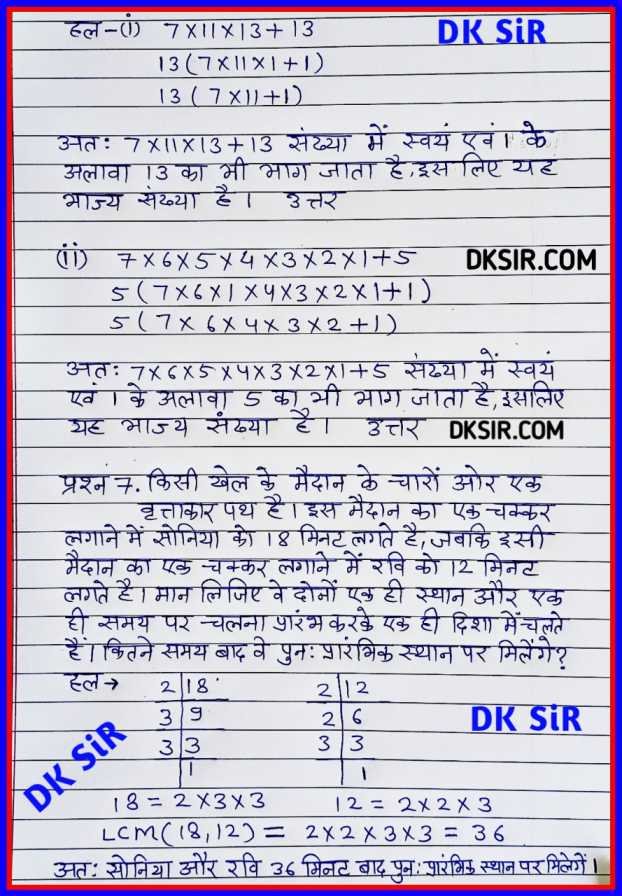 हल-(i) 7×11×13+13 DK SiR
13(7×11×1+1)
13(7×11+1)
अतः 7×11×13+13 संख्या में स्वयं एवं 1 के
अलावा 13 का भी भाग जाता है, इस लिए यह
भाज्य संख्या है। उत्तर
(ii) 7×6×5×4×3×2×1+5 DKSIR.COM
5(7×6×1×4×3×2×1+1)
5(7×6×4×3×2+1)
अतः 7×6×5×4×3×2×1+5 संख्या में स्वयं
एवं 1 के अलावा 5 का भी भाग जाता है, इसलिए
यह भाज्य संख्या है। उत्तर DKSIR.COM
प्रश्न 7. किसी खेल के मैदान के चारों ओर एक
वृत्ताकार पथ है। इस मैदान का एक चक्कर
लगाने में सोनिया को 18 मिनट लगते है, जबकि इसी
मैदान का एक चक्कर लगाने में रवि को 12 मिनट
लगते है। मान लिजिए वे दोनों एक ही स्थान और एक
ही समय पर चलना प्रारंभ करके एक ही दिशा में चलते
हैं। कितने समय बाद वे पुनः प्रारंभिक स्थान पर मिलेंगे?
हल→ 2|18 2|12
3|9 2|6 DK SiR
3|3 3|3
|1 |1
DK SiR
18=2×3×3 12=2×2×3
LCM(18,12) = 2×2×3×3 = 36
अतः सोनिया और रवि 36 मिनट बाद पुनः प्रारंभिक स्थान पर मिलेगें।